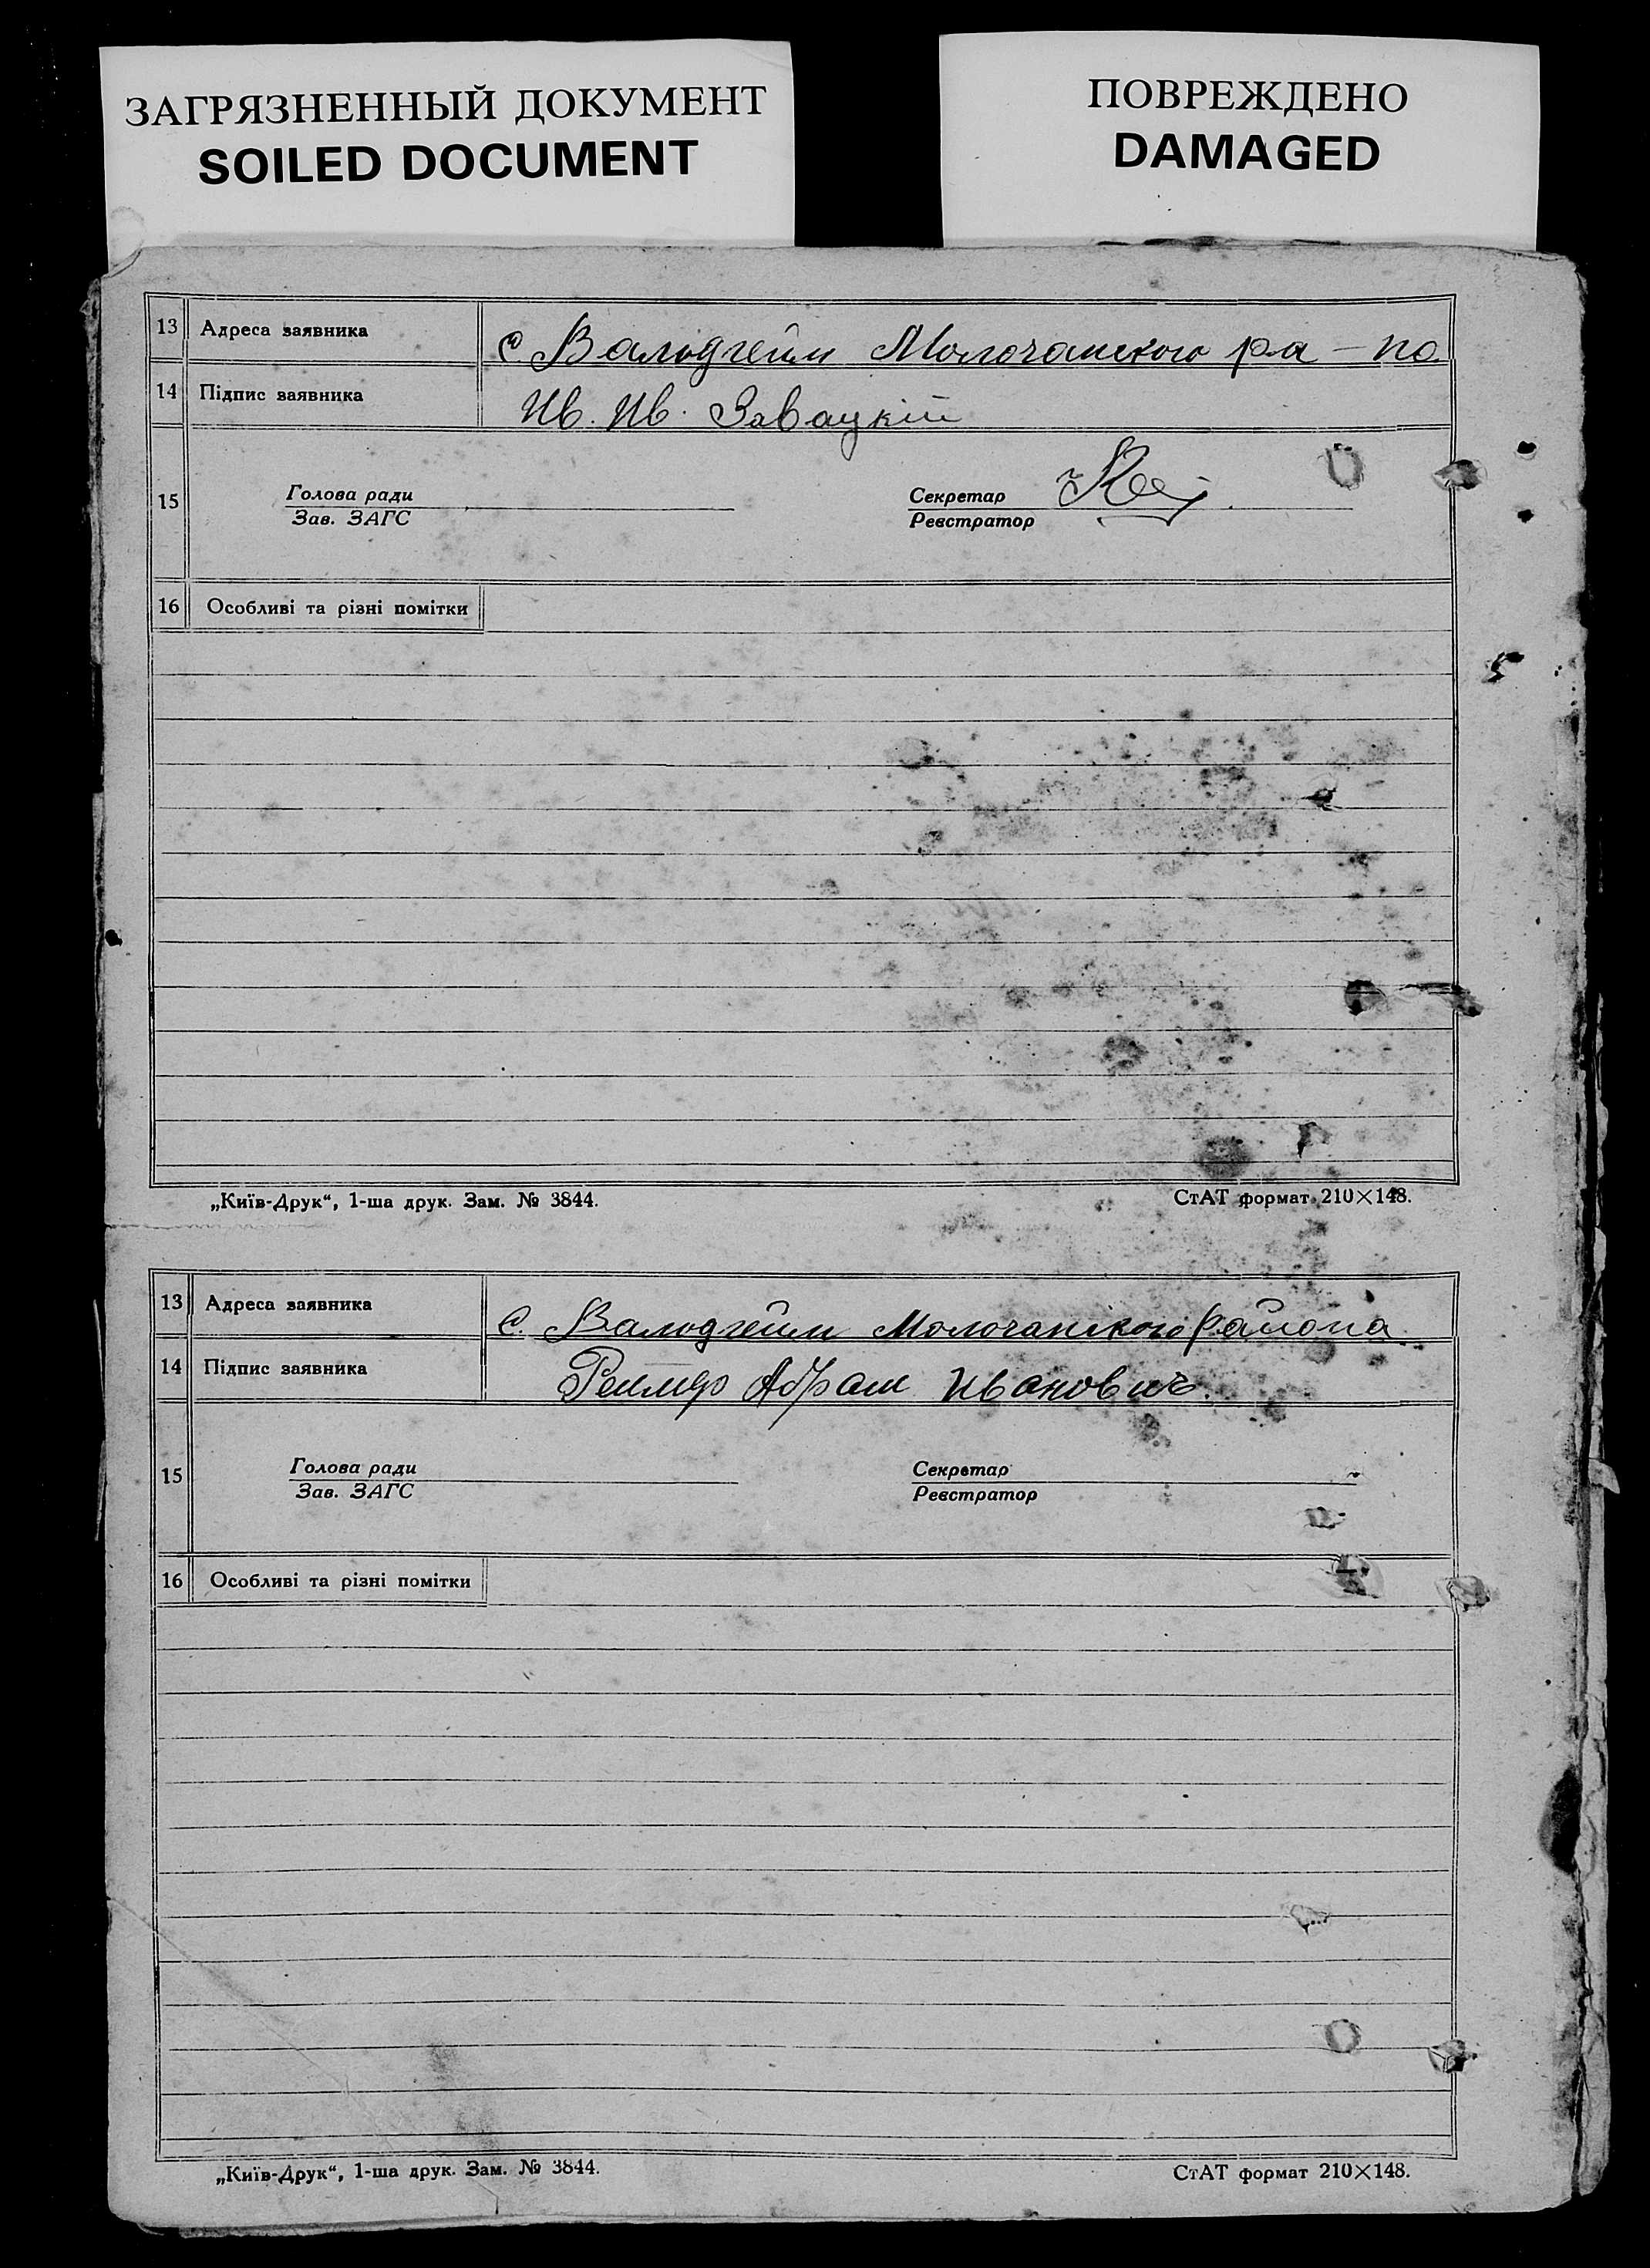 ЗАГРЯЗНЕННЫЙ ДОКУМЕНТ
SOILED DOCUMENT
ПОВРЕЖДЕНО
DAMAGED
13 Адреса заявника с. Вальдгейм Молочанского р-а - на
14 Підпис заявника Ив. Ив. Завацкій
15 Голова ради Секретар
Зав. ЗАГС Реєстратор
16 Особливі та різні помітки
„Київ-Друк“, 1-ша друк. Зам. № 3844. СтАТ формат 210×148.
13 Адреса заявника с. Вальдгейм Молочанского района
14 Підпис заявника Реимер Абрам Иванович.
15 Голова ради Секретар
Зав. ЗАГС Реєстратор
16 Особливі та різні помітки
„Київ-Друк“, 1-ша друк. Зам. № 3844. СтАТ формат 210×148.